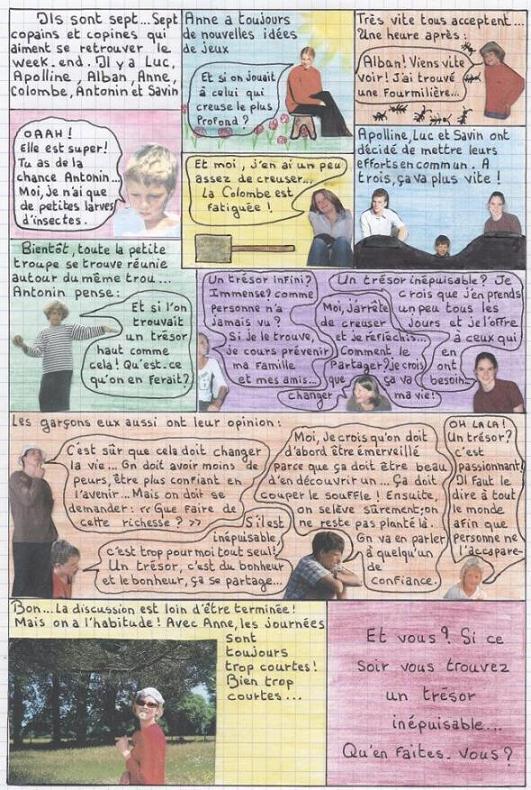 Ils sont sept... Sept
copains et copines qui
aiment se retrouver le
week-end. Il y a Luc,
Apolline, Alban, Anne,
Colombe, Antonin et Savin
Anne a toujours
de nouvelles idées
de jeux
Et si on jouait
à celui qui
creuse le plus
profond ?
Très vite tous acceptent...
Une heure après :
Alban! Viens vite
voir! J'ai trouvé
une Fourmilière...
OAAH!
Elle est super!
Tu as de la
chance Antonin...
Moi, je n'ai que
de petites larves
d'insectes.
Et moi, j'en ai un peu
assez de creuser...
La Colombe est
fatiguée !
Apolline, Luc et Savin ont
décidé de mettre leurs
efforts en commun. A
trois, ça va plus vite !
Bientôt, toute la petite
troupe se trouve réunie
autour du même trou...
Antonin pense :
Et si l'on
trouvait
un trésor
haut comme
cela! Qu'est-ce
qu'on en ferait?
Un trésor infini?
Immense? comme
personne n'a
jamais vu ?
Si je le trouve,
je cours prévenir
ma famille
et mes amis...
Moi, j'arrête
de creuser
et je réfléchis...
Comment le
partager? je crois
que ça va
changer ma vie!
Un trésor inépuisable? Je
crois que j'en prends
un peu tous les
jours et je l'offre
à ceux qui
en
ont
besoin...
Les garçons eux aussi ont leur opinion :
C'est sûr que cela doit changer
la vie... On doit avoir moins de
peurs, être plus confiant en
l'avenir... Mais on doit se
demander : « Que faire de
cette richesse ? »
S'il est
inépuisable,
c'est trop pour moi tout seul!
Un trésor, c'est du bonheur
et le bonheur, ça se partage...
Moi, je crois qu'on doit
d'abord être émerveillé
parce que ça doit être beau
d'en découvrir un... Ça doit
couper le souffle ! Ensuite,
on se lève sûrement; on
ne reste pas planté là.
On va en parler
à quelqu'un
de
confiance.
OH LA LA !
Un trésor?
c'est
passionnant
Il faut le
dire à tout
le monde
afin que
personne ne
l'accapare
Bon... La discussion est loin d'être terminée!
Mais on a l'habitude! Avec Anne, les journées
sont
toujours
trop courtes!
Bien trop
courtes...
Et vous? Si ce
soir vous trouvez
un trésor
inépuisable...
Qu'en faites-vous?